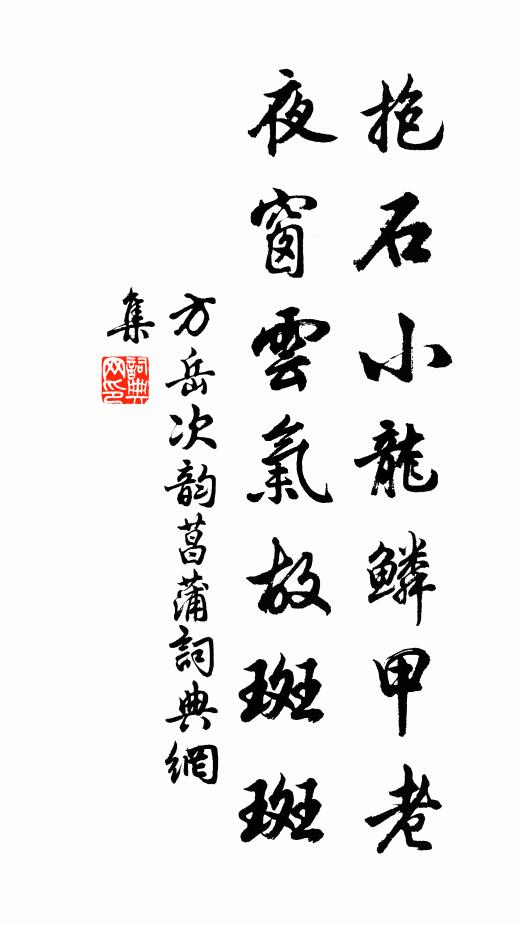 抱石小龍鱗甲老
夜窗雲氣故斑斑
方岳次韵菖蒲詞典網
集
詞典網印